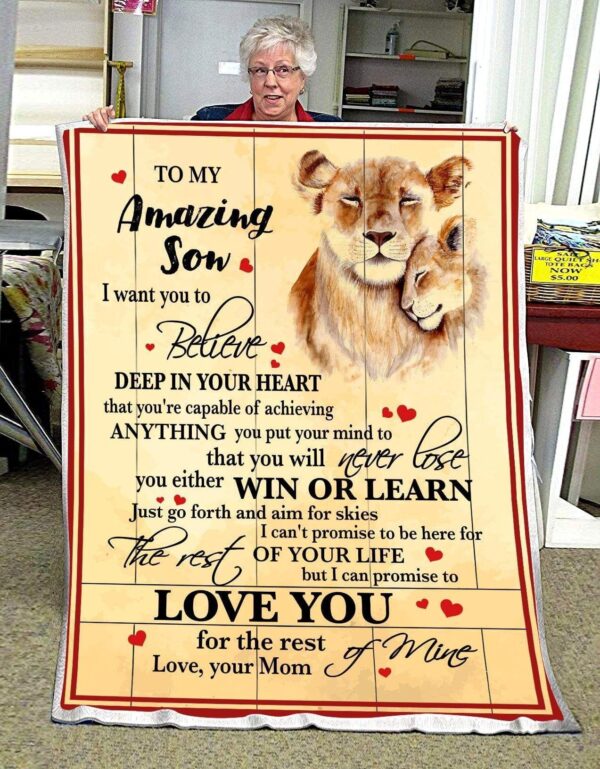 TO MY
Amazing
Son
I want you to
Believe
DEEP IN YOUR HEART
that you're capable of achieving
ANYTHING you put your mind to
that you will never lose
you either WIN OR LEARN
Just go forth and aim for skies
I can't promise to be here for
The rest OF YOUR LIFE
but I can promise to
LOVE YOU
for the rest of Mine
Love, your Mom
LARGE QUILT SH
TOTE BAGS
NOW
$5.00